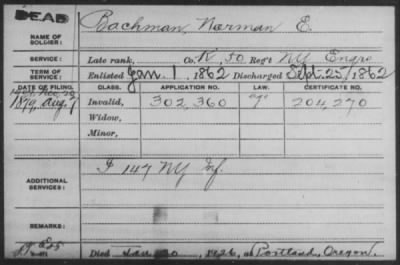 DEAD
Bachman, Norman E.
NAME OF
SOLDIER:
SERVICE: Late rank, Co. K, 50 Reg't NY Engrs
TERM OF
SERVICE: Enlisted Jan. 1, 1862 Discharged Sept. 25, 1862
DATE OF FILING. CLASS. APPLICATION NO. LAW. CERTIFICATE NO.
1879, Aug. 7 Invalid, 302,360 204,270
Widow,
Minor,
ADDITIONAL
SERVICES: I 147 NY Inf.
REMARKS:
Died Jan 1926, at Portland, Oregon.